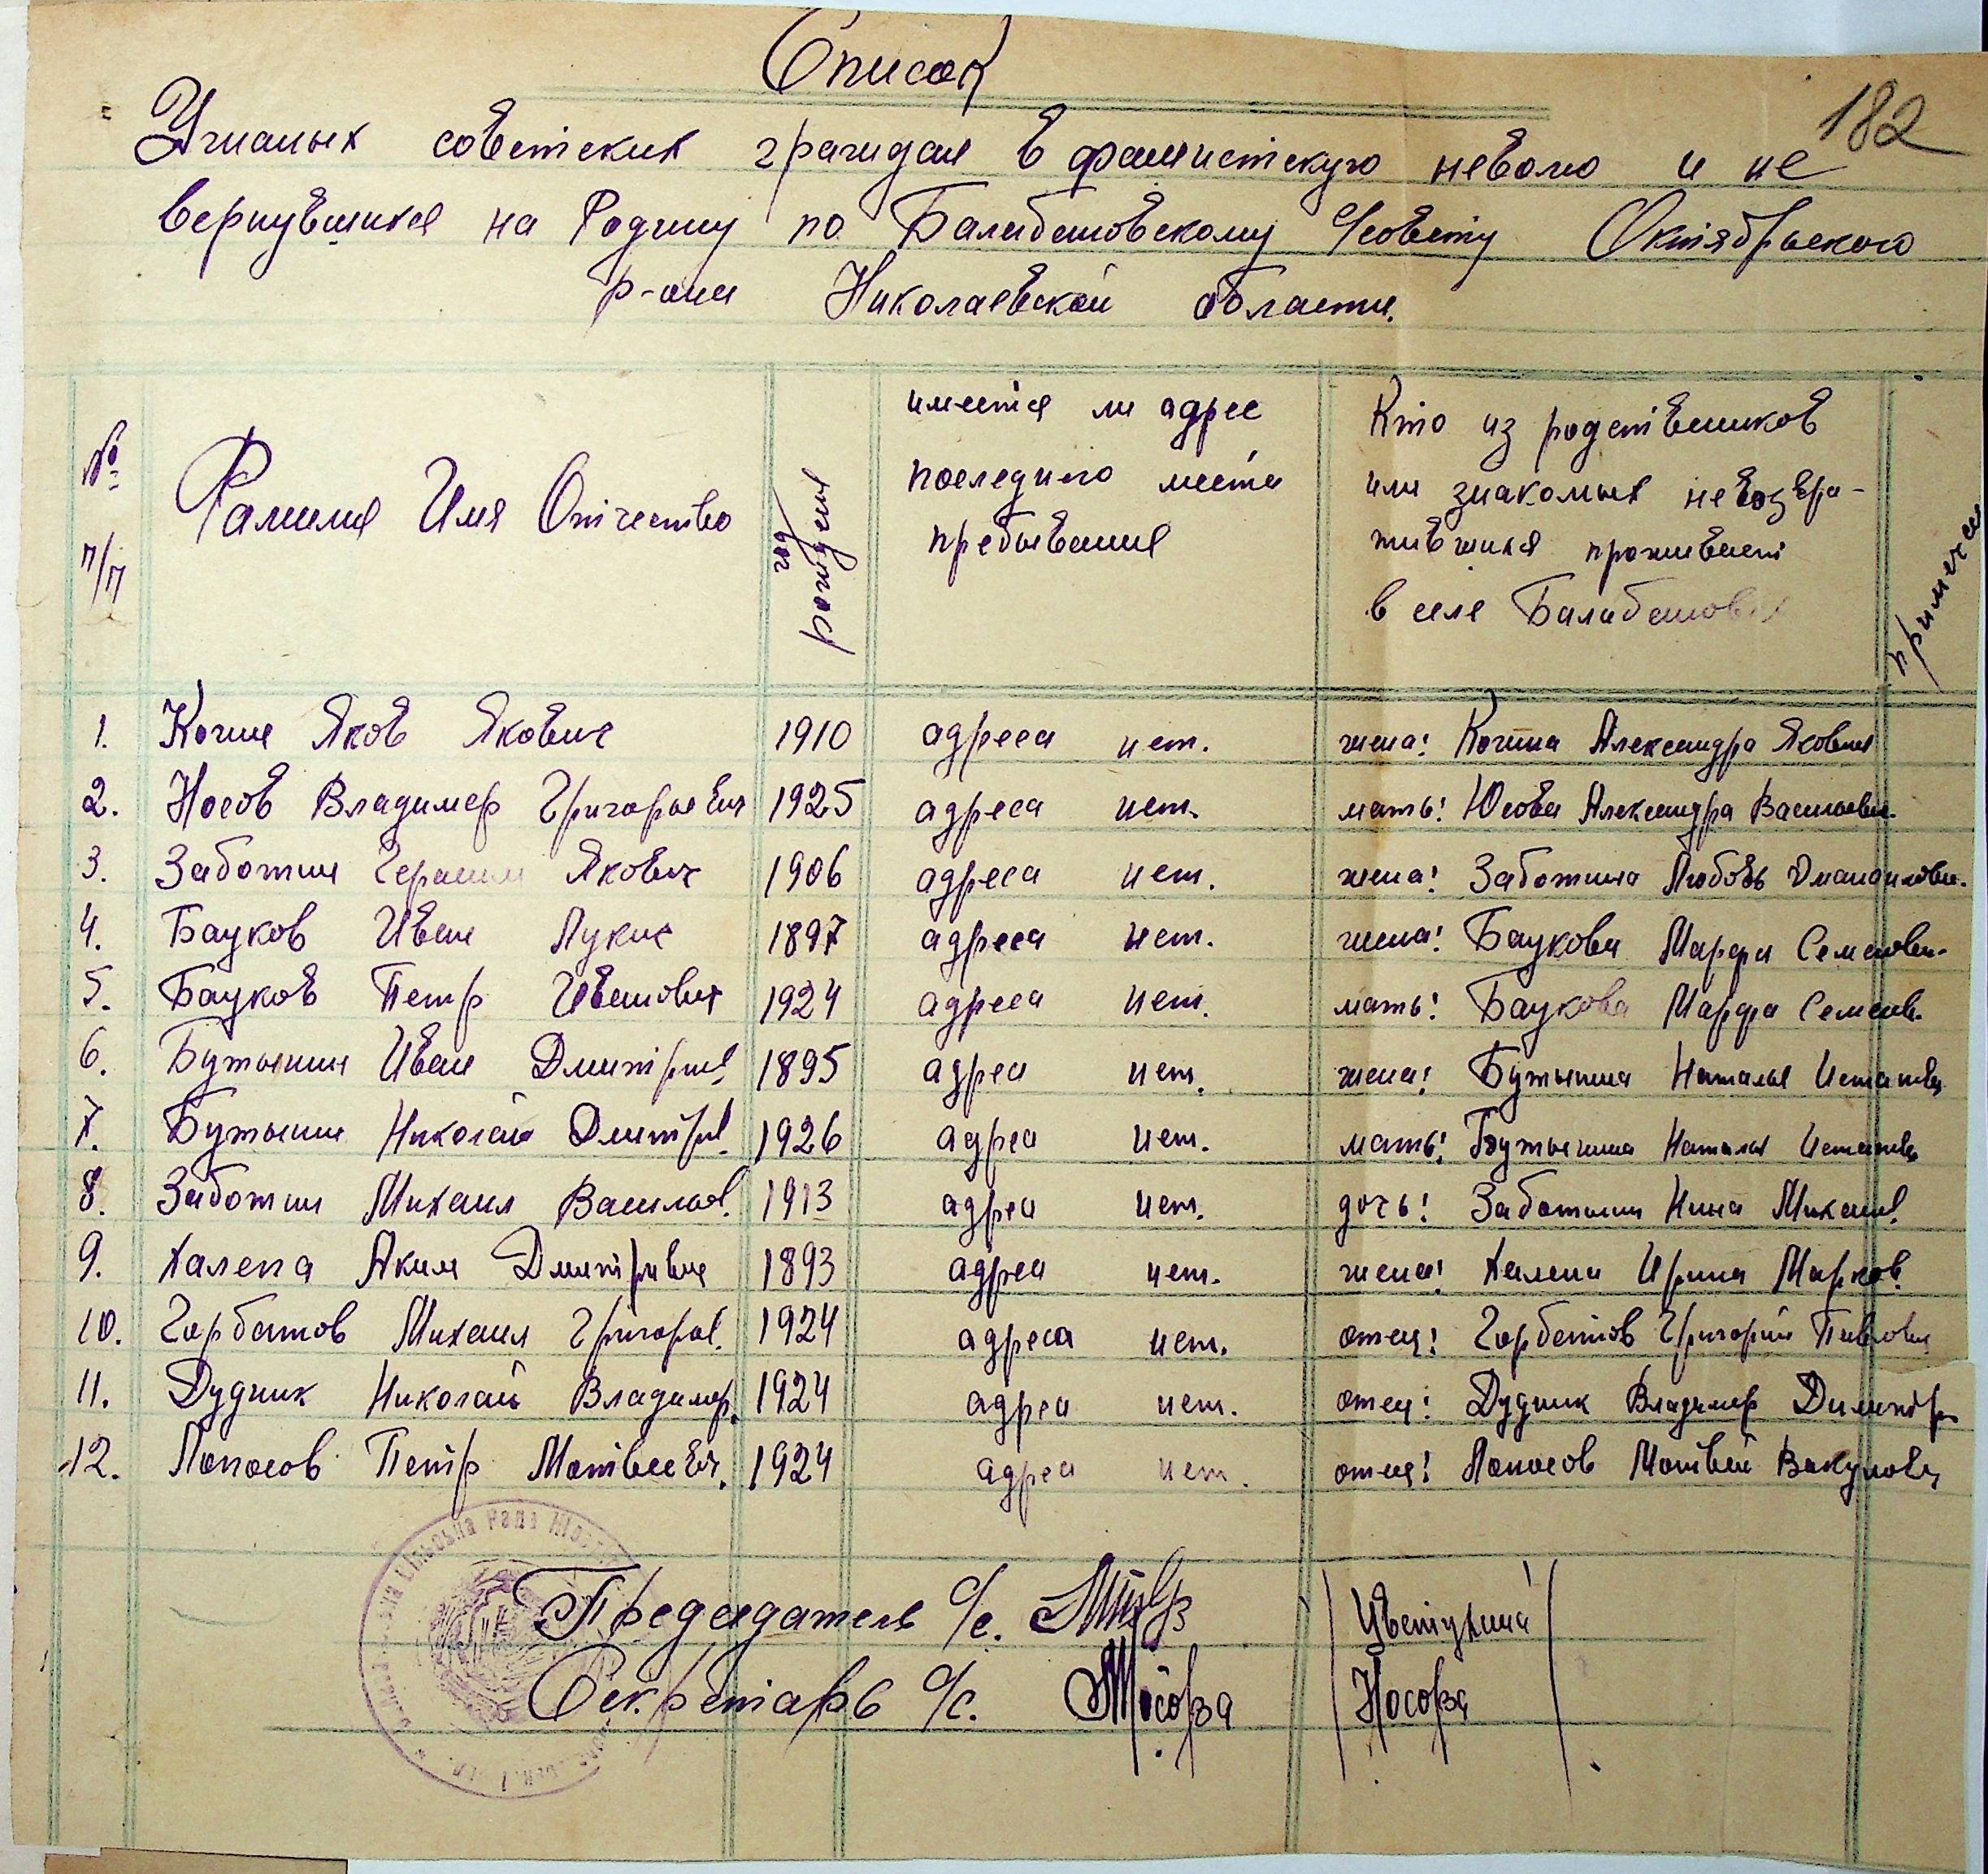 Список
182
Угнаных советских граждан в фашистскую неволю и не
вернувшихся на Родину по Балабановскому с/совету Октябрьского
р-она Николаевской области.
№ п/п
Фамилия Имя Отчество
год рождения
имеется ли адрес
последнего места
пребывания
Кто из родственников
или знакомых невозвра-
тившихся проживает
в селе Балабановка
примечан
1. Кочин Яков Якович 1910 адреса нет. жена! Кочина Александра Яковлев
2. Носов Владимер Григорьевич 1925 адреса нет. мать! Юсова Александра Васильевн.
3. Заботин Герасим Якович 1906 адреса нет. жена! Заботина Любовь
4. Бауков Иван Лукич 1897 адреса нет. жена! Баукова Марфа Семеновн.
5. Бауков Петр Иванович 1924 адреса нет. мать! Баукова Марфа Семенов.
6. Бутынин Иван Дмитриев. 1895 адреа нет. жена! Бутынина Наталья
7. Бутынин Николай Дмитрив. 1926 адреа нет. мать! Бутынина Наталья
8. Заботин Михаил Васильев. 1913 адреа нет. дочь! Заботина Нина Михайл.
9. Халепа Аким Дмитривич 1893 адреа нет. жена! Халепа Ирина Марков.
10. Горбатов Михаил Григорьев. 1924 адреса нет. отец! Горбатов Григорий Павлович
11. Дудник Николай Владимер. 1924 адреа нет. отец! Дудник Владимер Димитр.
12. Лопосов Петр Матвеевич. 1924 адреа нет. отец! Лопосов Матвей Вакулович
Председатель с/с. Цветухина
Секретарь с/с. Носорва